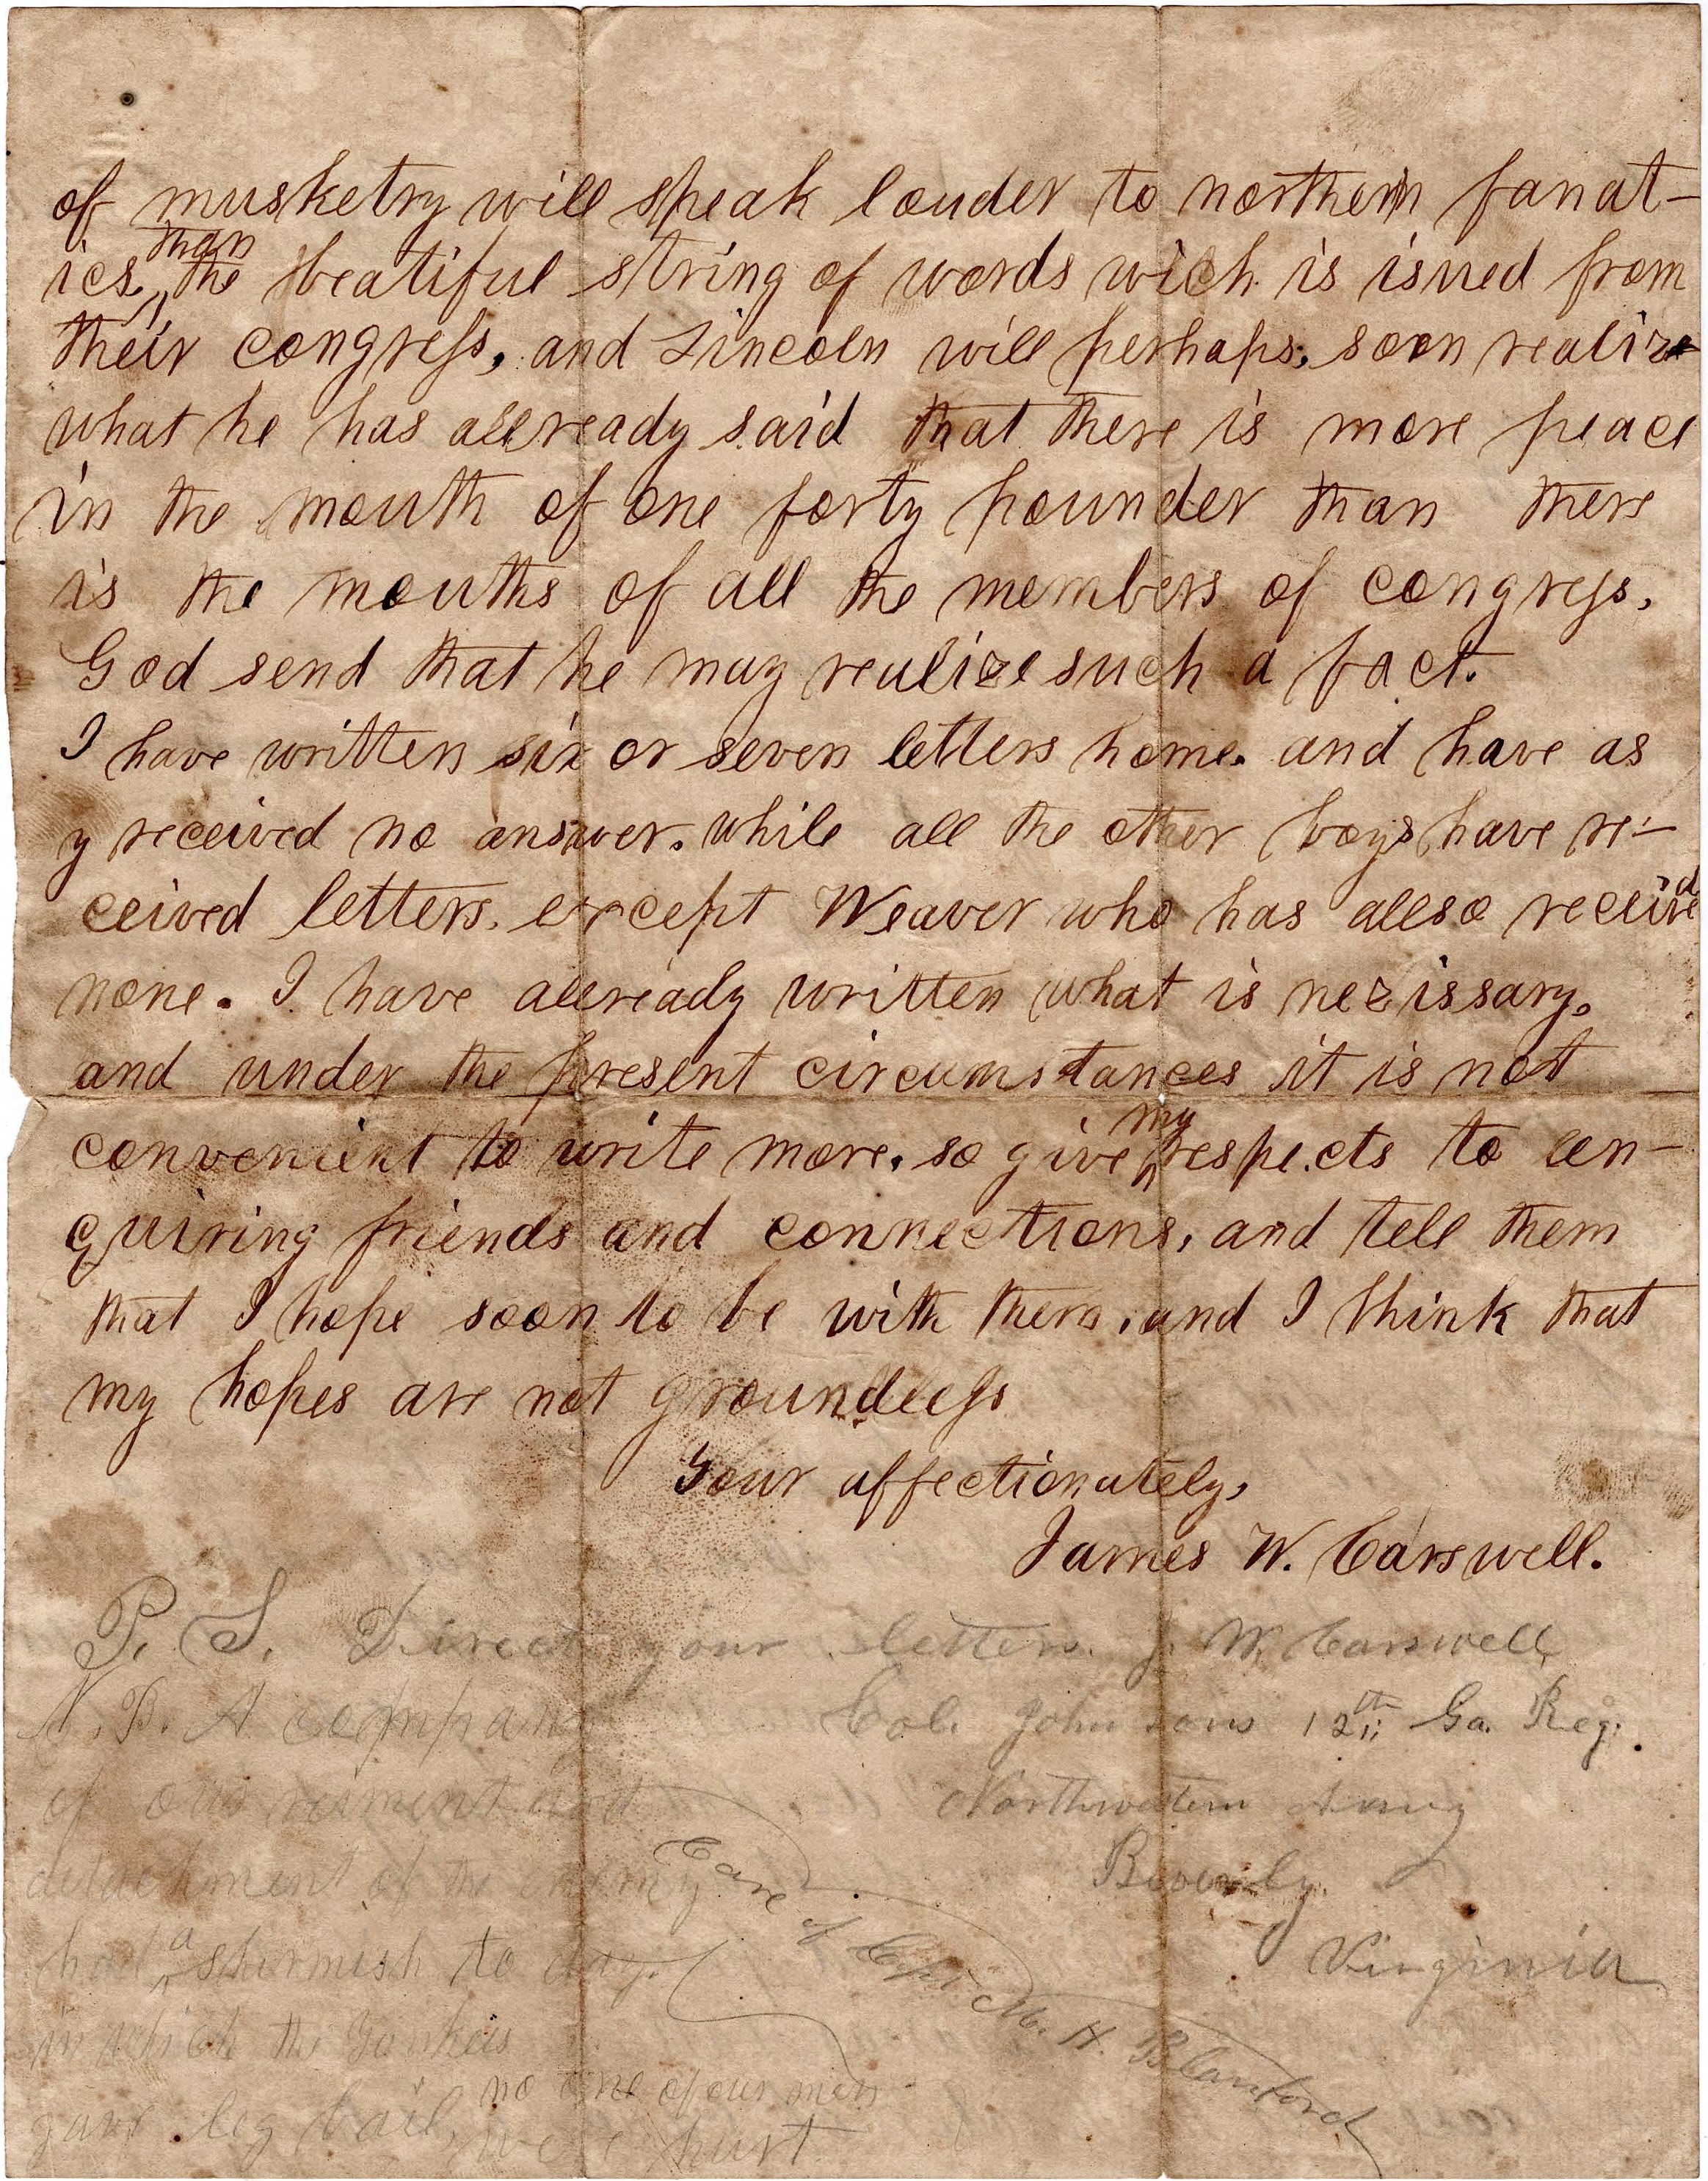 of musketry will speak louder to northern fanat-
ics than the beatiful string of words wich is isued from
their congress, and Lincoln will perhaps, soon realize
what he has allready said that there is more peace
in the mouth of one forty pounder than there
is the mouths of all the members of congress.
God send that he may realize such a fact.
I have written six or seven letters home. and have as
y received no answer. while all the other boys have re-
ceived letters. except Weaver who has allso received
none. I have allready written what is nezissary.
and under the present circumstances it is not
convenient to write more. so give my respects to en-
quiring friends and connections, and tell them
that I hope soon to be with them. and I think that
my hopes are not groundless
Your affectionately,
James W. Carswell.
P. S. Direct your letters. J. W. Carswell,
Col. Johnsons 12th Ga. Reg.
Northwestern Army
Beverly.
Virginia
Care of Capt. M. H. Blanford
N. B. A company
of our regiment and
detachment of the army
had a skirmish to day.
in which the Yankeis
gave leg bail, no one of our men
were hurt